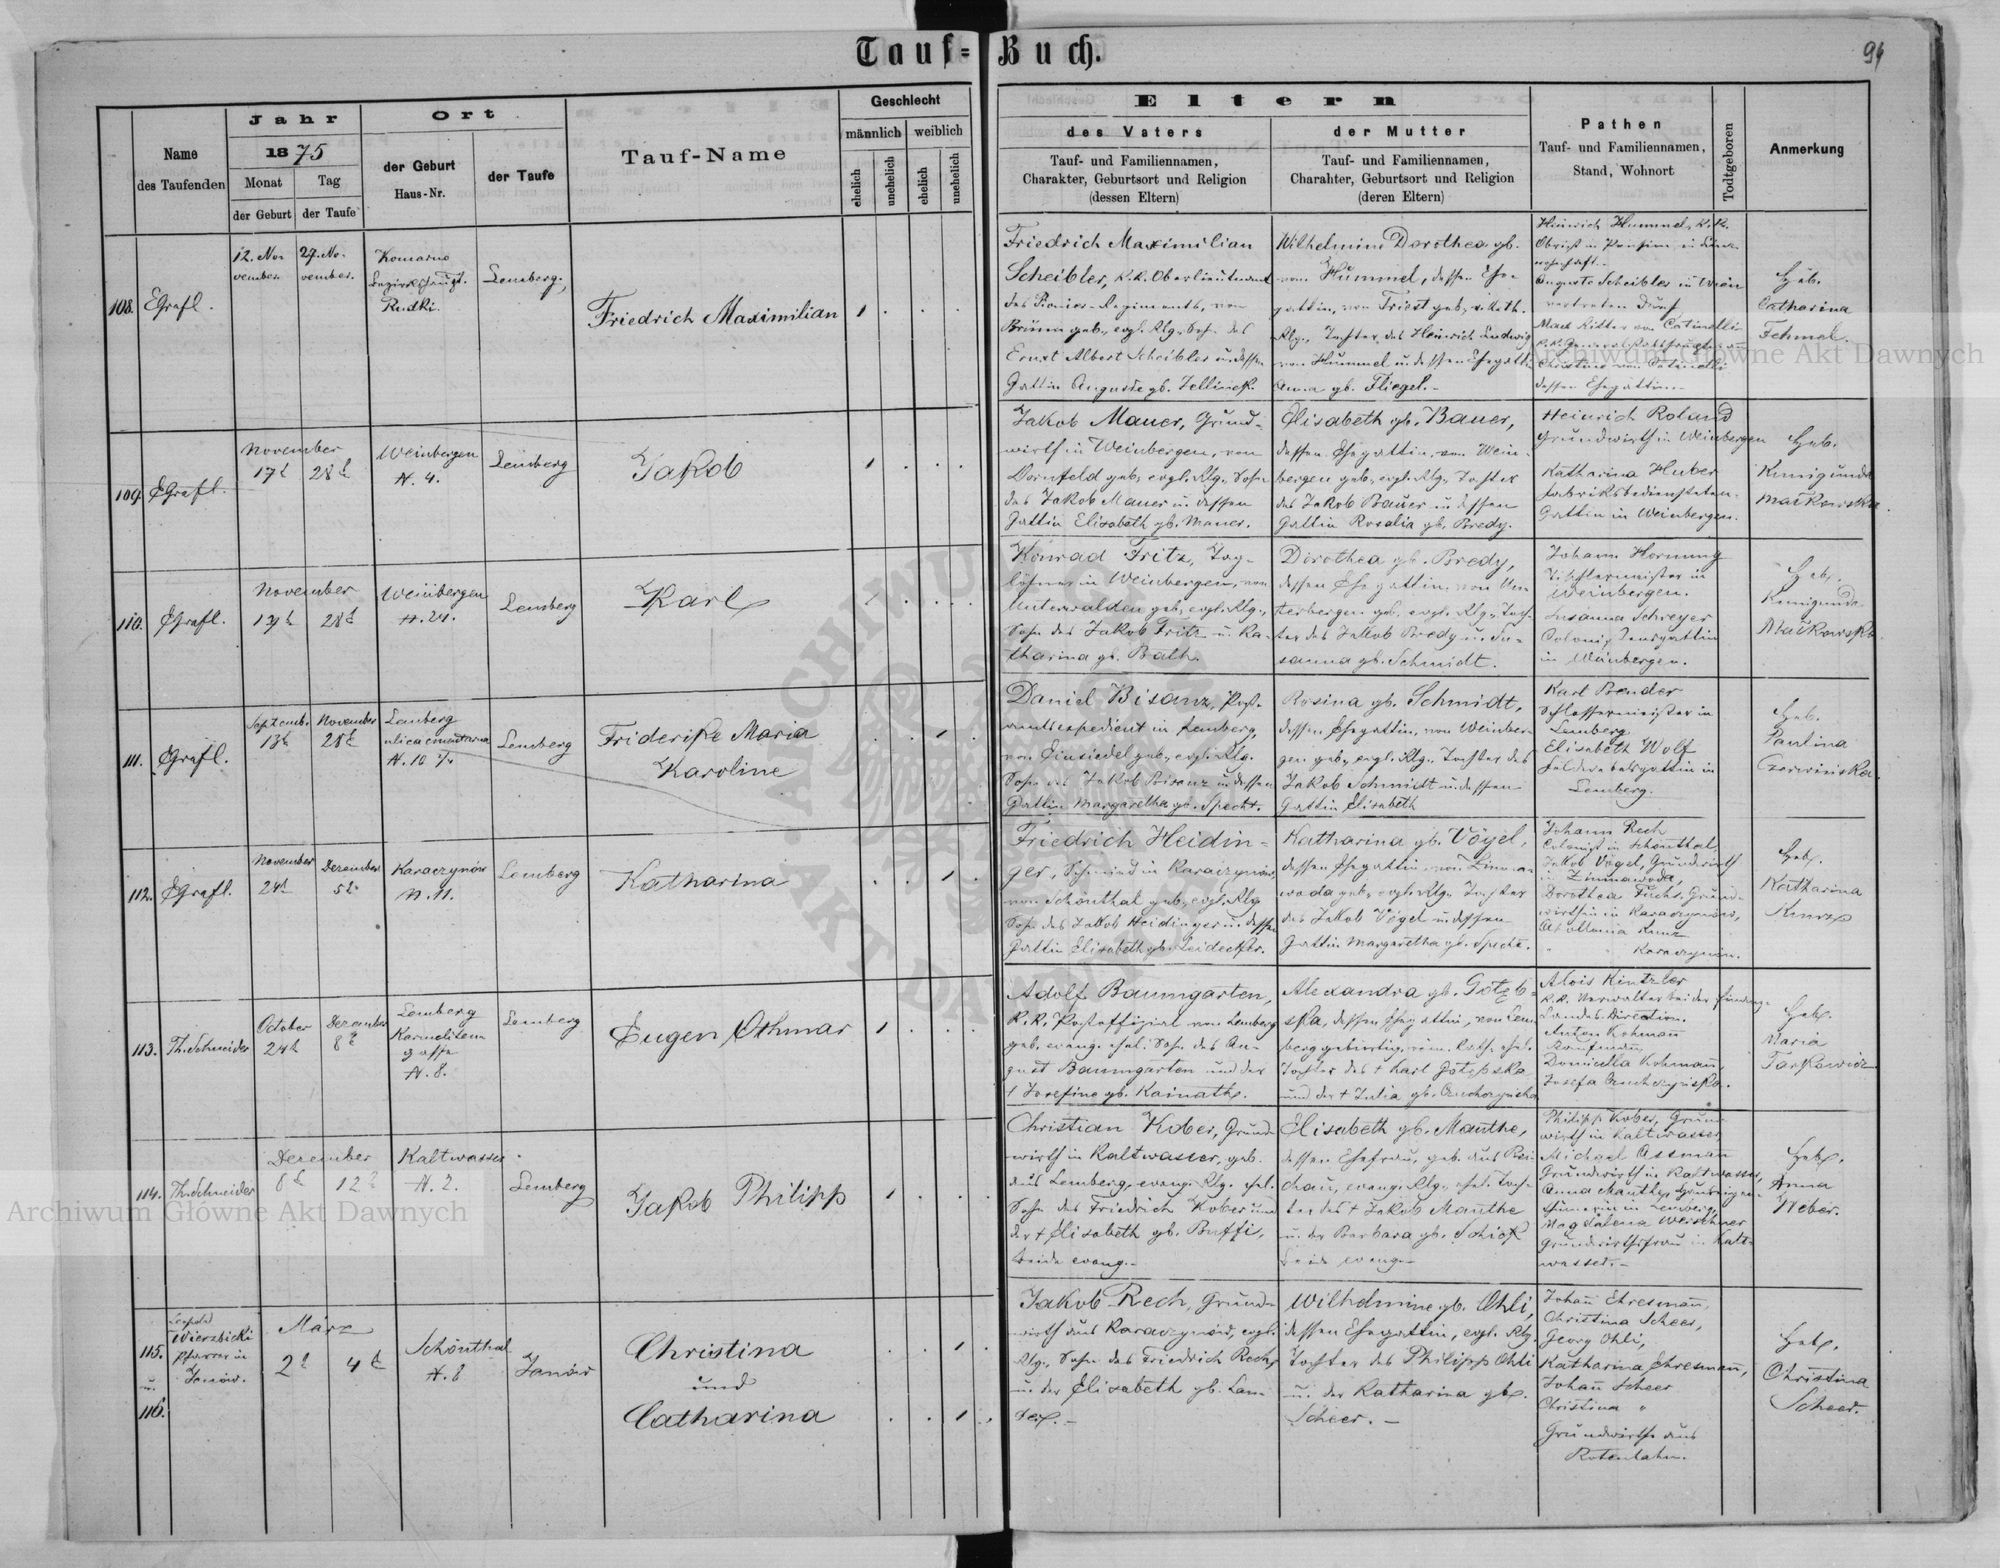 Tauf-Buch.
94
Name
des Taufenden
Jahr
1875
Monat
Tag
der Geburt
der Taufe
Ort
der Geburt
Haus-Nr.
der Taufe
Tauf-Name
Geschlecht
männlich
weiblich
ehelich
unehelich
ehelich
unehelich
Eltern
des Vaters
Tauf- und Familiennamen,
Charakter, Geburtsort und Religion
(dessen Eltern)
der Mutter
Tauf- und Familiennamen,
Charakter, Geburtsort und Religion
(deren Eltern)
Pathen
Tauf- und Familiennamen,
Stand, Wohnort
Todtgeboren
Anmerkung
108. EGrafl.
12. No-
vember
27. No-
vember.
Komarno
Rudki.
Lemberg.
Friedrich Maximilian
Friedrich Maximilian
Scheibler, k.k. Oberlieutenant
des Pionier-Regiments, von
Brünn geb., evgl. Rlg., Sohn des
Ernst Albert Scheibler u. dessen
Gattin Auguste gb. Jellinek.
Wilhelmine Dorothea gb.
von Hummel, dessen Ehe-
gattin, von Triest geb., r. kath.
Rlg., Tochter des Heinrich Ludwig
von Hummel u. dessen Ehegattin
Anna gb. Fliegel.-
Heinrich Hummel, k.k.
Auguste Scheibler in Wien
vertreten durch
Max Ritter von Catinelli
Christine von Catinelli
dessen Ehegattin.-
Heb.
Catharina
Fehmel.
109. EGrafl.
November
17t
28t
Weinbergen
N. 4.
Lemberg
Jakob
Jakob Mauer, Grund-
wirth in Weinbergen, von
Dornfeld geb., evgl. Rlg., Sohn
des Jakob Mauer u. dessen
Gattin Elisabeth gb. Mauer.
Elisabeth gb. Bauer,
dessen Ehegattin, von Wein-
bergen geb., evgl. Rlg., Tochter
des Jakob Bauer u. dessen
Gattin Rosalia gb. Bredy.
Heinrich Roland
Grundwirth in Weinbergen
Katharina Huber
Fabriksbediensteten-
Gattin in Weinbergen.
Heb.
Kunigunda
Maikowska.
110. EGrafl.
November
19t
28t
Weinbergen
N. 21.
Lemberg
Karl
Konrad Fritz, Tag-
löhner in Weinbergen, von
Unterwalden geb., evgl. Rlg.,
Sohn des Jakob Fritz u. Ka-
tharina gb. Bath.
Dorothea gb. Bredy,
dessen Ehegattin, von Un-
terbergen geb., evgl. Rlg., Toch-
ter des Jakob Bredy u. Su-
sanna gb. Schmidt.
Johann Hornung
Tischlermeister in
Weinbergen.
Susanna Schreyer
in Weinbergen.
Heb.
Kunigunda
Maikowska
111. EGrafl.
Septemb.
13t
November
28t
Lemberg
ulica cmentarna
Lemberg
Friderike Maria
Karoline
Daniel Bisanz, Post-
amtsexpedient in Lemberg,
von Einsiedel geb., evgl. Rlg.
Sohn des Jakob Bisanz u. dessen
Gattin Margaretha gb. Specht.
Rosina gb. Schmidt,
dessen Ehegattin, von Weinber-
gen geb., evgl. Rlg., Tochter des
Jakob Schmidt u. dessen
Gattin Elisabeth
Karl Bender
Schlossermeister in
Lemberg
Elisabeth Wolf
Feldwebelsgattin in
Lemberg.
Heb.
Paulina
Czerwinska.
112. EGrafl.
November
24t
Dezember
5t
Karaczynów
N. 11.
Lemberg
Katharina
Friedrich Heidin-
ger, Schmied in Karaczynów,
von Schönthal geb., evgl. Rlg.
Sohn des Jakob Heidinger u. dessen
Gattin Elisabeth gb. Leidecker.
Katharina gb. Vogel,
dessen Ehegattin, von Zimna-
woda geb., evgl. Rlg., Tochter
des Jakob Vogel u. dessen
Gattin Margaretha gb. Specht.
Johann Rech
Colonist in Schönthal,
Jakob Vogel, Grundwirth
in Zimnawoda,
Dorothea Fuchs, Grund-
wirthin in Karaczynów,
Apollonia Kunz
" Karaczynów.
Heb.
Katharina
Kunz
113. Th. Schneider
October
24t
Dezember
8t
Lemberg
Karmeliten-
gasse
N. 8.
Lemberg
Eugen Othmar
Adolf Baumgarten,
k.k. Postoffizial von Lemberg
geb., evang., ehel. Sohn des Au-
gust Baumgarten und der
† Josefine gb. Kainath.
Alexandra gb. Gołęb-
ska, dessen Ehegattin, von Lem-
berg gebürtig, röm. kath., ehel.
Tochter des † Karl Gołębski
und der † Julia gb.
Alois Kintzler
k.k. Verwalter bei der Finanz-
Landes-Direction.
Anton Kohmann
Domicella Kohmann,
Heb.
Maria
Tarkowicz
114. Th. Schneider
Dezember
8t
12t
Kaltwasser
N. 2.
Lemberg
Jakob Philipp
Christian Kober, Grund-
wirth in Kaltwasser, geb.
aus Lemberg, evang. Rlg., ehel.
Sohn des Friedrich Kober und
der † Elisabeth gb. Buffi,
beide evang.-
Elisabeth gb. Manthe,
dessen Ehefrau, geb. aus Rei-
chau, evang. Rlg., ehel. Toch-
ter des † Jakob Manthe
u. der Barbara gb. Schick
beide evang.-
Philipp Kober, Grund-
wirth in Kaltwasser,
Michael Assman
Grundwirth in Kaltwasser,
Anna Manthe,
Magdalena Werschner
Grundwirthsfrau in Kalt-
wasser.-
Heb.
Anna
Weber.
115.
u.
116.
Leopold
Wierzbicki
Pfarrer in
Janów.
März
2t
4t
Schönthal
N. 8
Janów
Christina
und
Catharina
Jakob Rech, Grund-
wirth aus Karaczynów, evgl.
Rlg., Sohn des Friedrich Rech,
u. der Elisabeth gb. Lan-
Wilhelmine gb. Ohli,
dessen Ehegattin, evgl. Rlg.
Tochter des Philipp Ohli
u. der Katharina gb.
Scheer.-
Johann Ehresmann,
Christina Scheer,
Georg Ohli,
Katharina Ehresmann,
Johann Scheer
Christina "
Grundwirthe aus
Rotenhahn.
Heb.
Christina
Scheer.
Archiwum Główne Akt Dawnych
Archiwum Główne Akt Dawnych